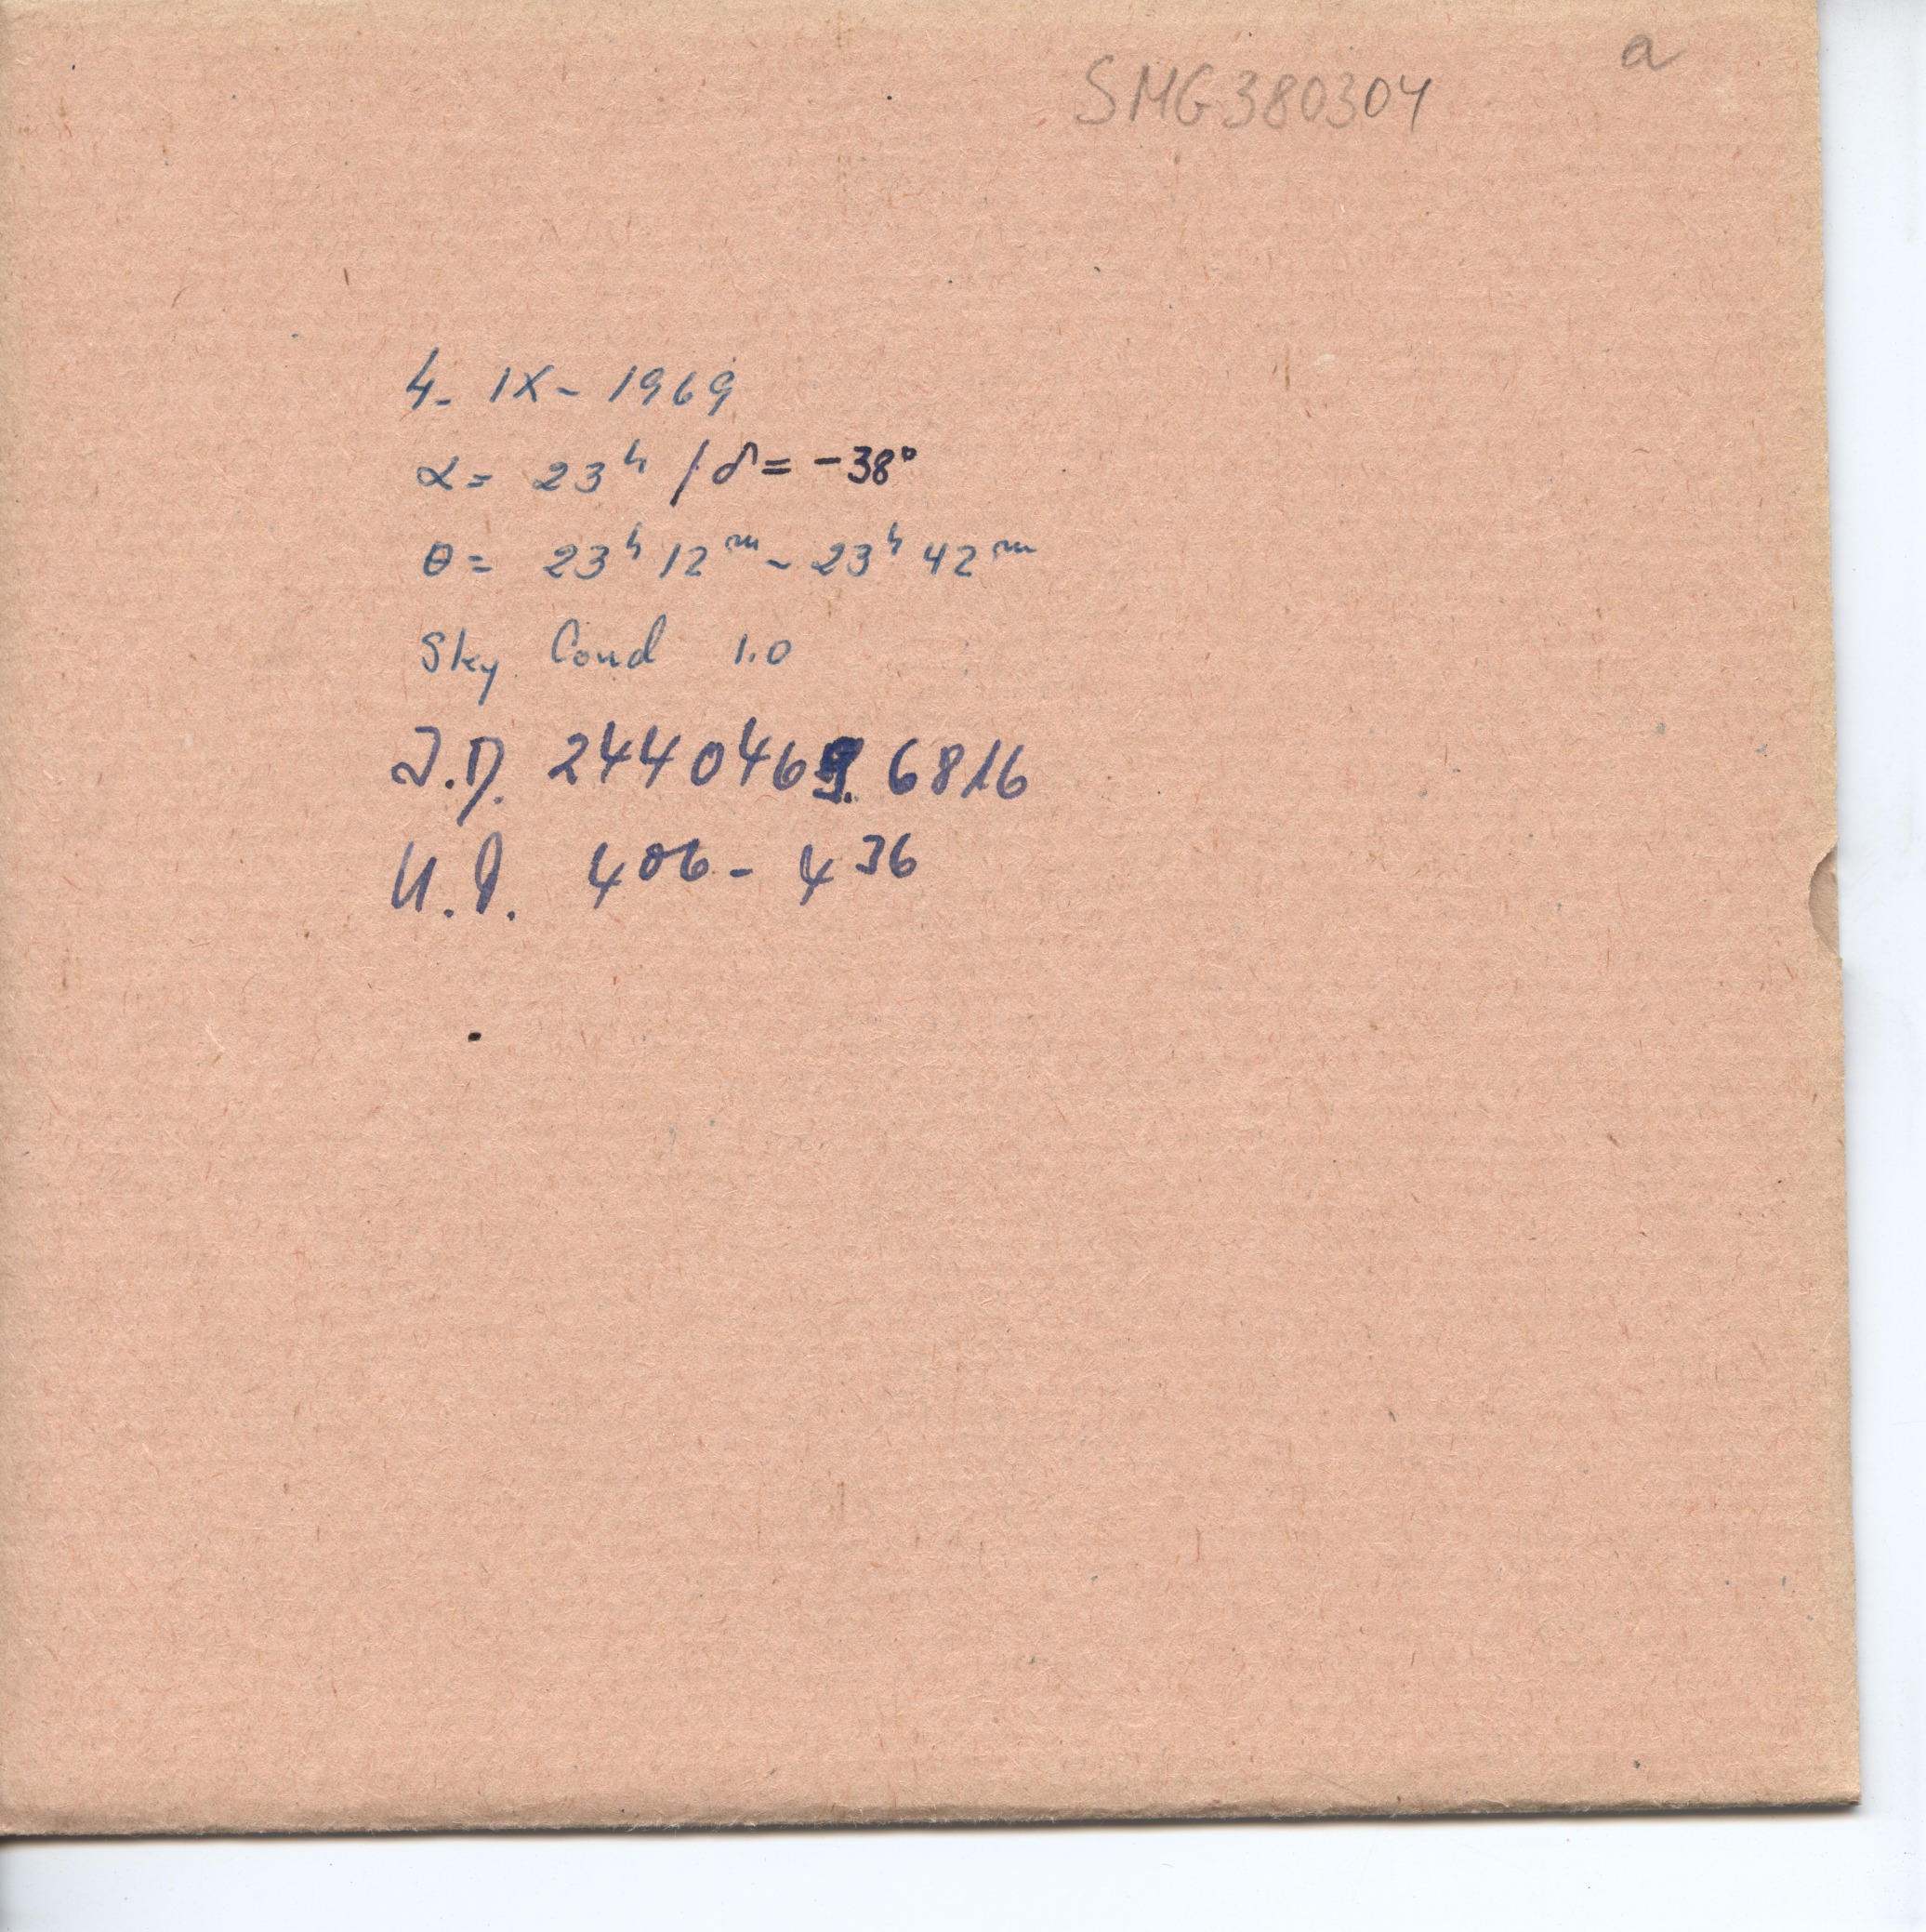 a
SMG380304
4- IX- 1969
α= 23ʰ / δ= -38°
θ= 23ʰ 12ᵐ - 23ʰ 42ᵐ
Sky Cond 1.0
J.D. 2440469.6816
U.T. 4⁰⁶ - 4³⁶